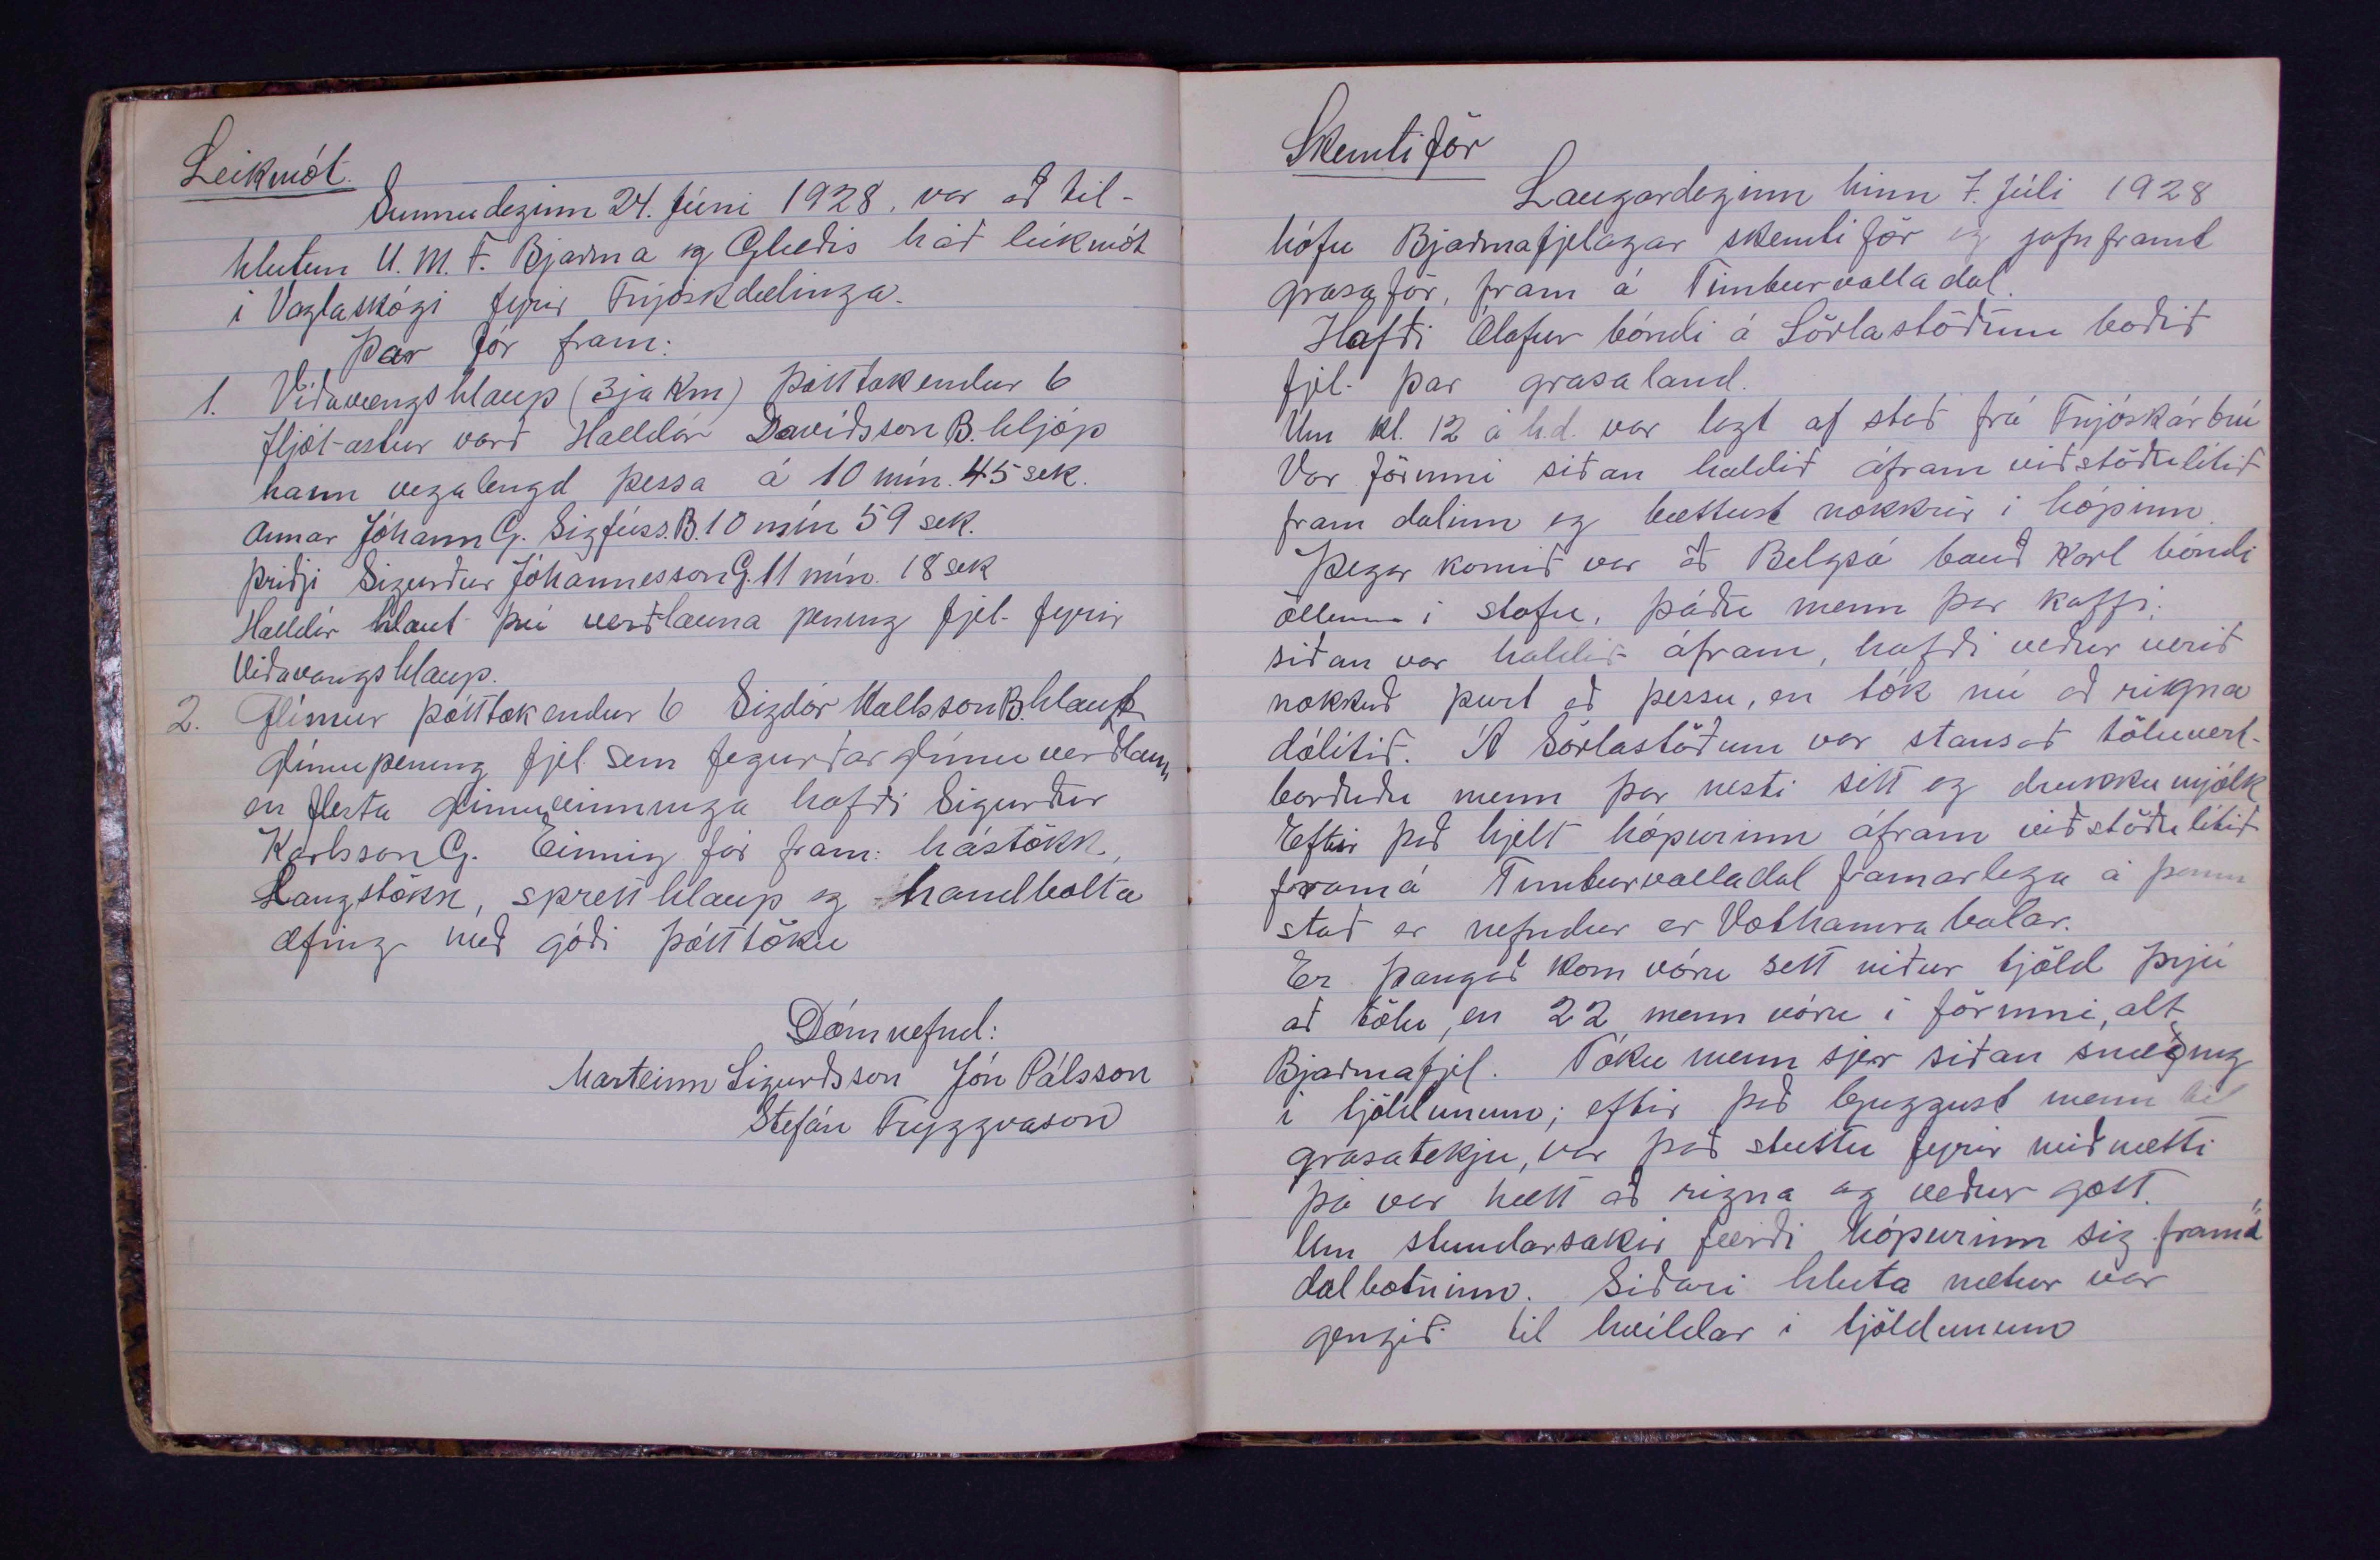 Leikmót.
Sunnudaginn 24. Júni 1928, var að til-
hlutun U. M. F. Bjarma og Gleðis háð leikmót
i Vaglaskógi fyrir Fnjóskdælinga.
Þar fór fram:
1. Viðavangshlaup (3ja Km) Þátttakendur 6
fljót-astur varð Halldór Davíðsson B. hljóp
hann vegalengd þessa á 10 mín. 45 sek.
Annar Jóhann G. Sigfúss. B. 10 mín 59 sek.
þriðji Sigurður Jóhannesson G. 11 mín. 18 sek
Halldór hlaut þvi verðlauna pening fjel. fyrir
Viðavangshlaup.
2. Glímur þátttakendur 6 Sigdór Hallsson B. hlaut
glímupening fjel sem fegurðar glímuverðlaun,
en flesta glimuvinninga hafði Sigurður
Karlsson G. Einnig fór fram: hástökk,
Langstökk, spretthlaup og handbolta
æfing með góði þátttöku
Dómnefnd:
Marteinn Sigurðsson Jón Pálsson
Stefán Tryggvason
Skemtiför
Laugardaginn hinn 7. Júli 1928
hófu Bjarmafjelagar skemtiför og jafnframt
grasaför, fram á Timburvalladal.
Hafði Ólafur bóndi á Sörlastöðum boðið
fjel. þar grasaland.
Um kl. 12 á h.d. var lagt af stað frá Fnjóskárbrú
Var förinni siðan haldið áfram viðstöðulitið
fram dalinn og bættust nokkrir i hópinn.
Þegar komið var að Belgsá bauð Karl bóndi
öllum i stofu, þáðu menn þar kaffi.
siðan var haldið áfram, hafði veður verið
nokkuð þurt að þessu, en tók nú að rigna
dálitið. Á Sörlastöðum var stansað töluvert-
borðuðu menn þar nesti sitt og drukku mjólk
Eftir það hjelt hópurinn áfram viðstöðulitið
fram á Timburvalladal framarlega á þann
stað er nefndur er Vothamrabalar.
Er þangað kom vóru sett niður tjöld þrjú
að tölu, en 22 menn vóru i förinni, alt
Bjarmafjel. Tóku menn sjer siðan snæðing
i tjöldunum; eftir það bjuggust menn til
grasatekju, var það stuttu fyrir miðnætti
þá var hætt að rigna og veður gott.
Um stundarsakir færði hópurinn sig fram á
dalbotninn. Siðari hluta nætur var
gengið til hvildar i tjöldunum